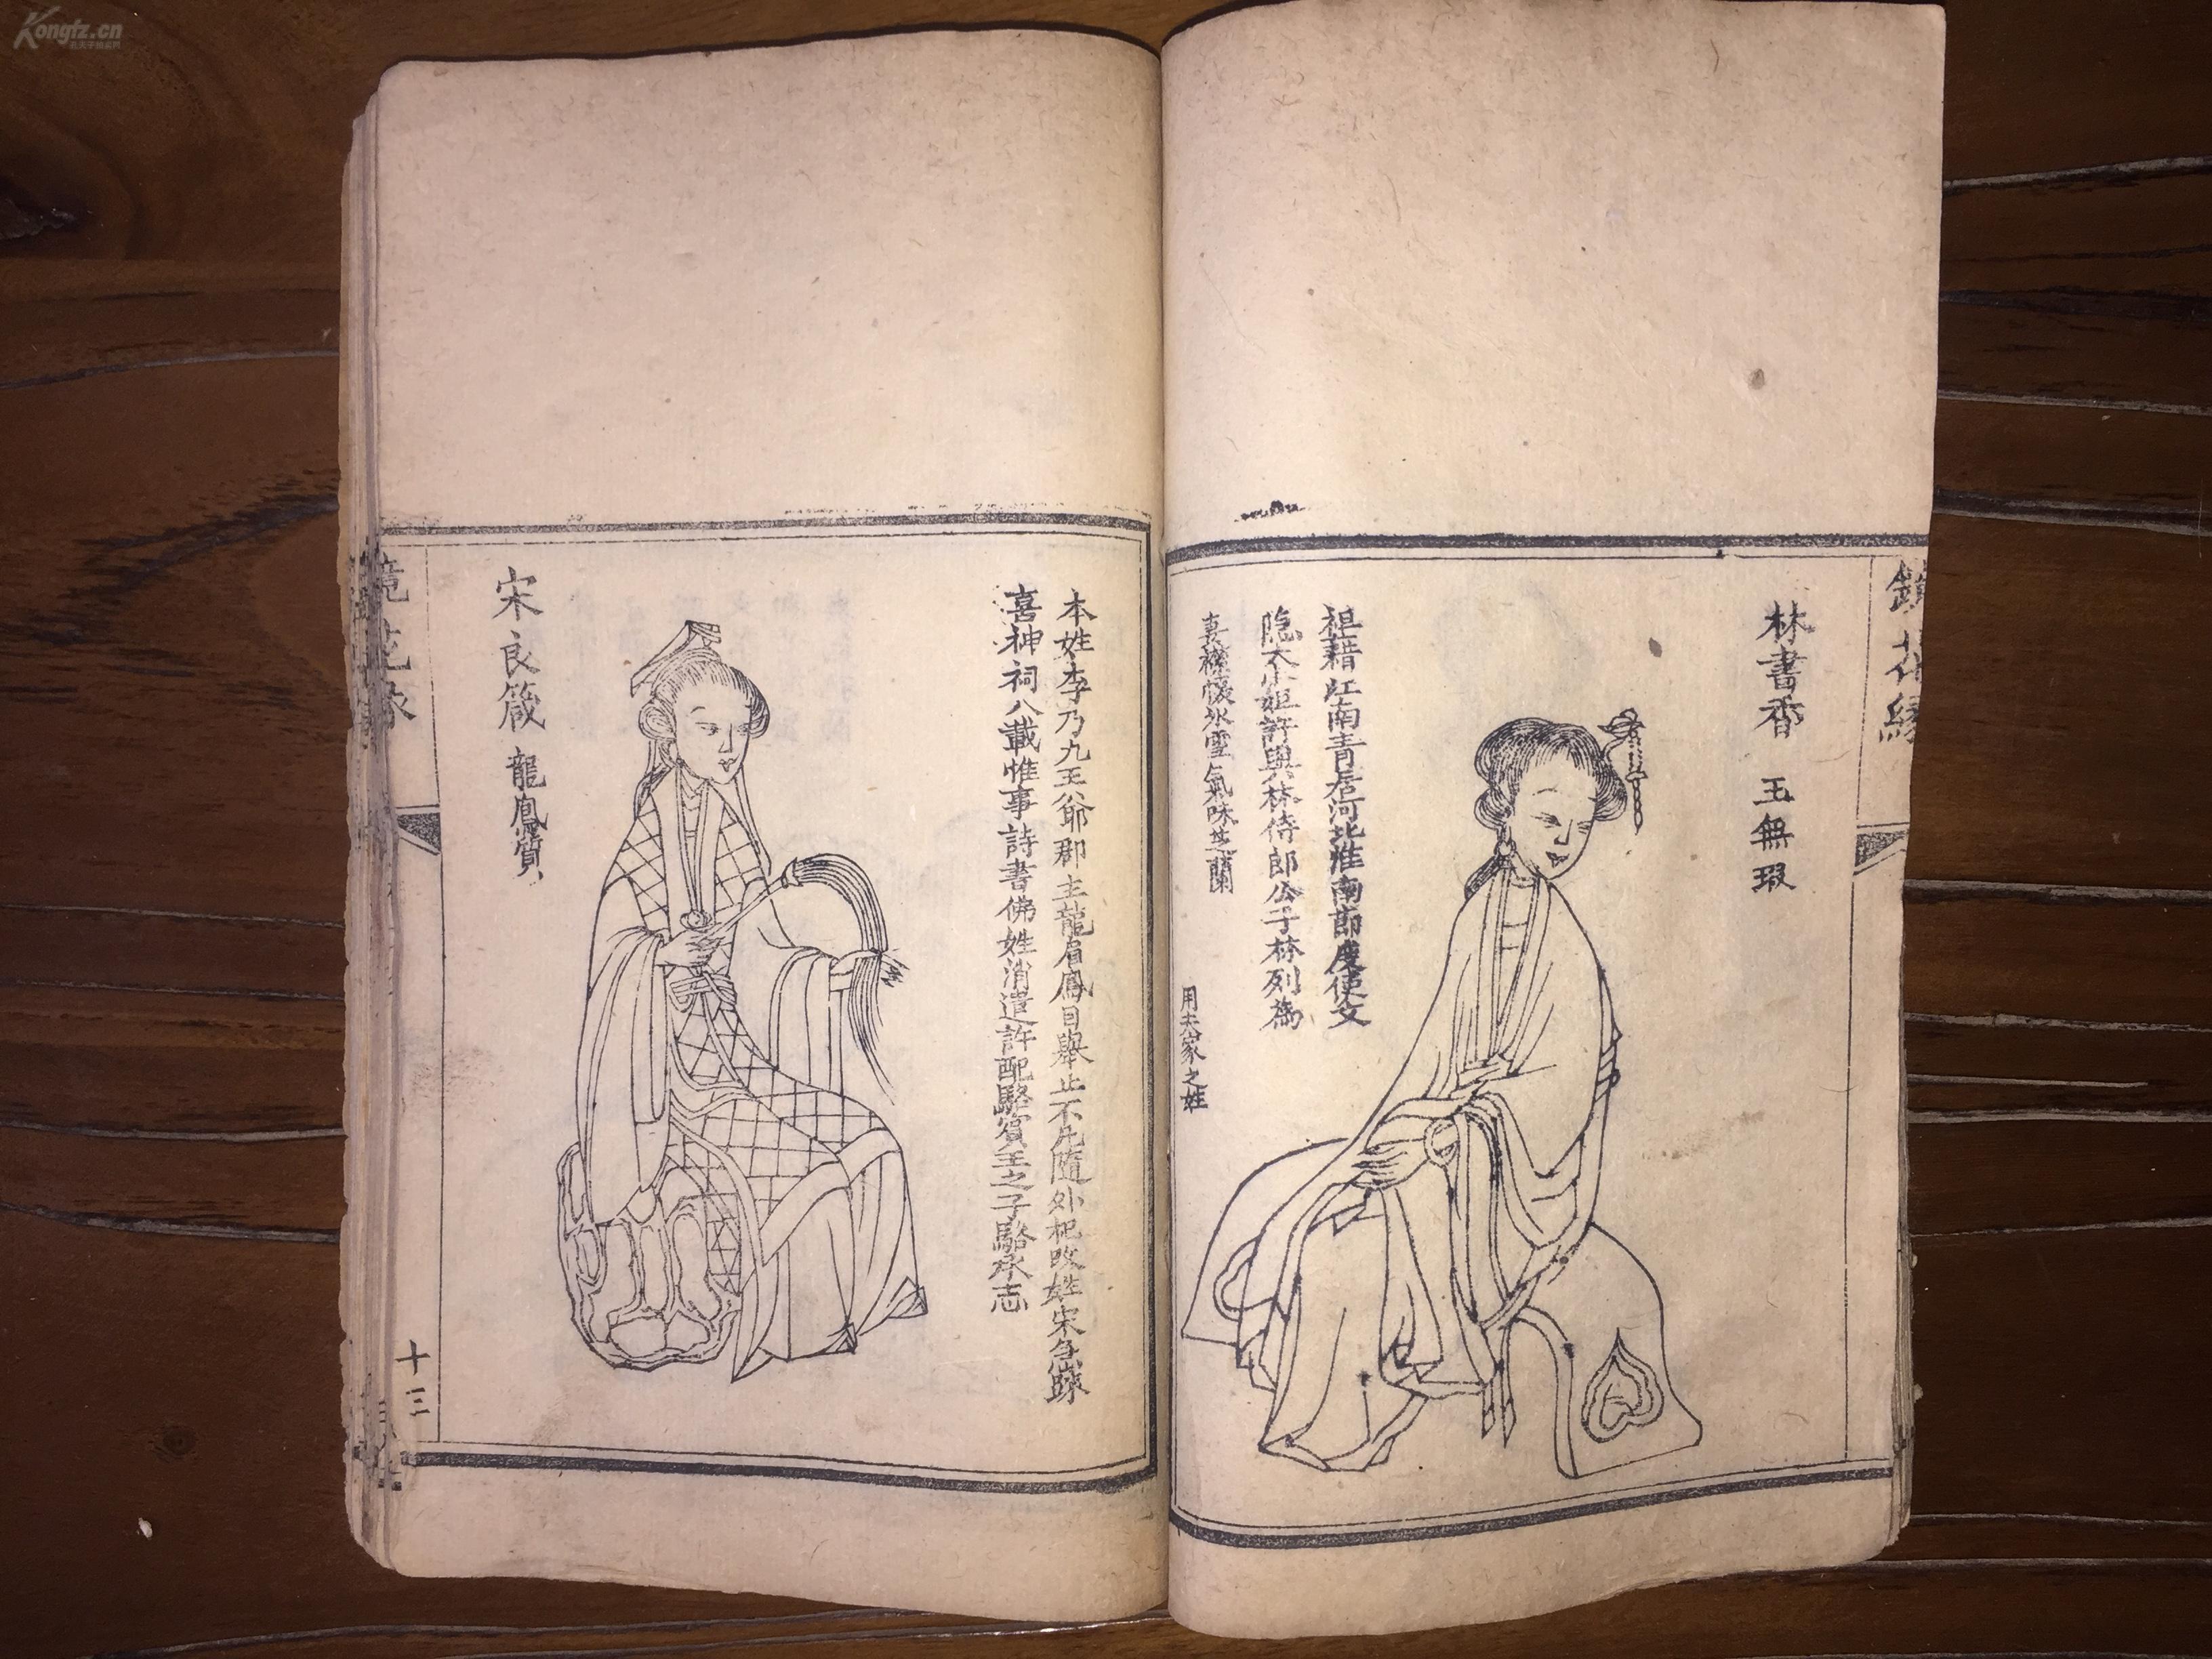 Kongfz.cn
孔夫子拍卖网
林書香 玉無瑕
祖籍江南青居河北淮南節度使文
隐大小姐許與林侍郎公子林列為
妻襟懷氷雪氣味芝蘭
用夫家之姓
本姓李乃九王爺郡主龍眉鳳目舉止不凡隨外祀改姓宋
喜神祠八載惟事詩書佛姓消遣許配駱賓王之子駱承志
宋良箴 龍鳳質
鏡花緣
十三